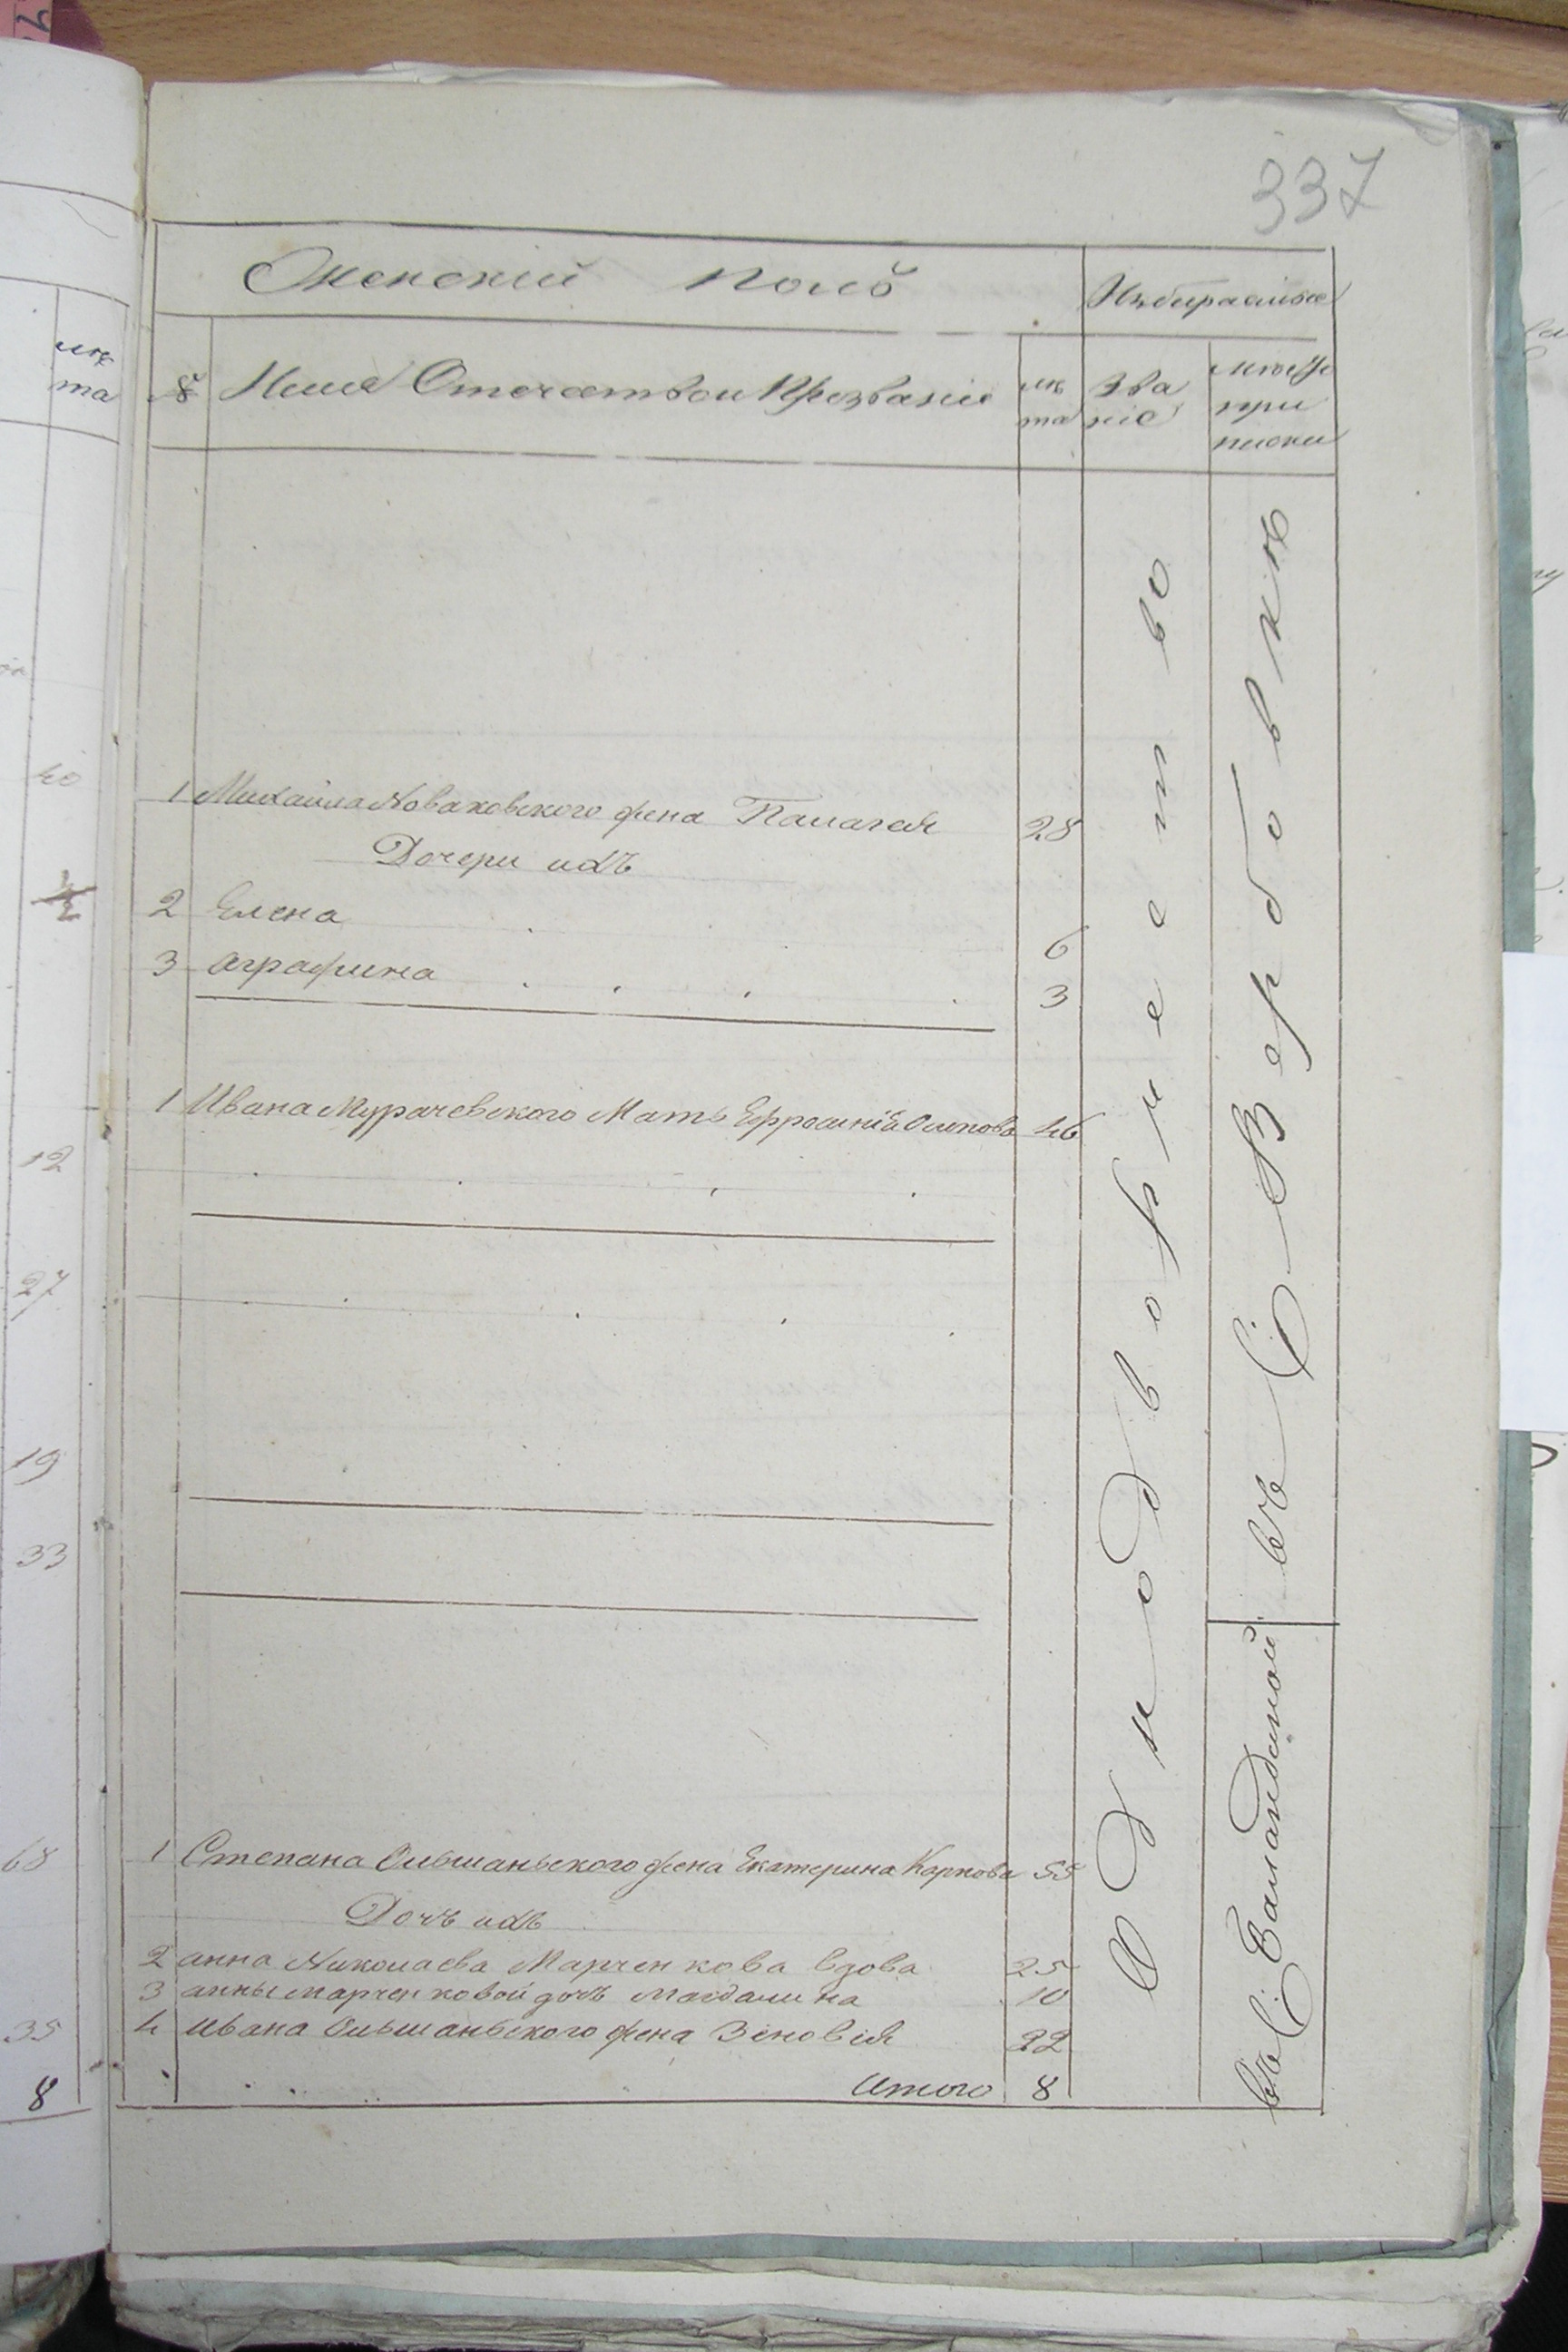 337
Женскій полъ
Избираемые
№ Имя Отечество и Прозваніе
лѣта
Званіе
мѣсто приписки
лѣта
1 Михайла Новаковского жена Палагея 28
Дочери ихъ
2 Елена 6
3 Аграфина 3
1 Ивана Мурачевского Мать Ефросинія Осипова 46
1 Степана Ольшаньского жена Екатерина Карпова 55
Дочь ихъ
2 анна Николаева Марченкова вдова 25
3 анны марченковой дочь Магдалина 10
4 Ивана Ольшаньского жена Зеновія 22
Итого 8
Однодворчество
въ С. Вербовкѣ
въ С. Баландиной
40
1/2
12
27
19
33
68
35
8